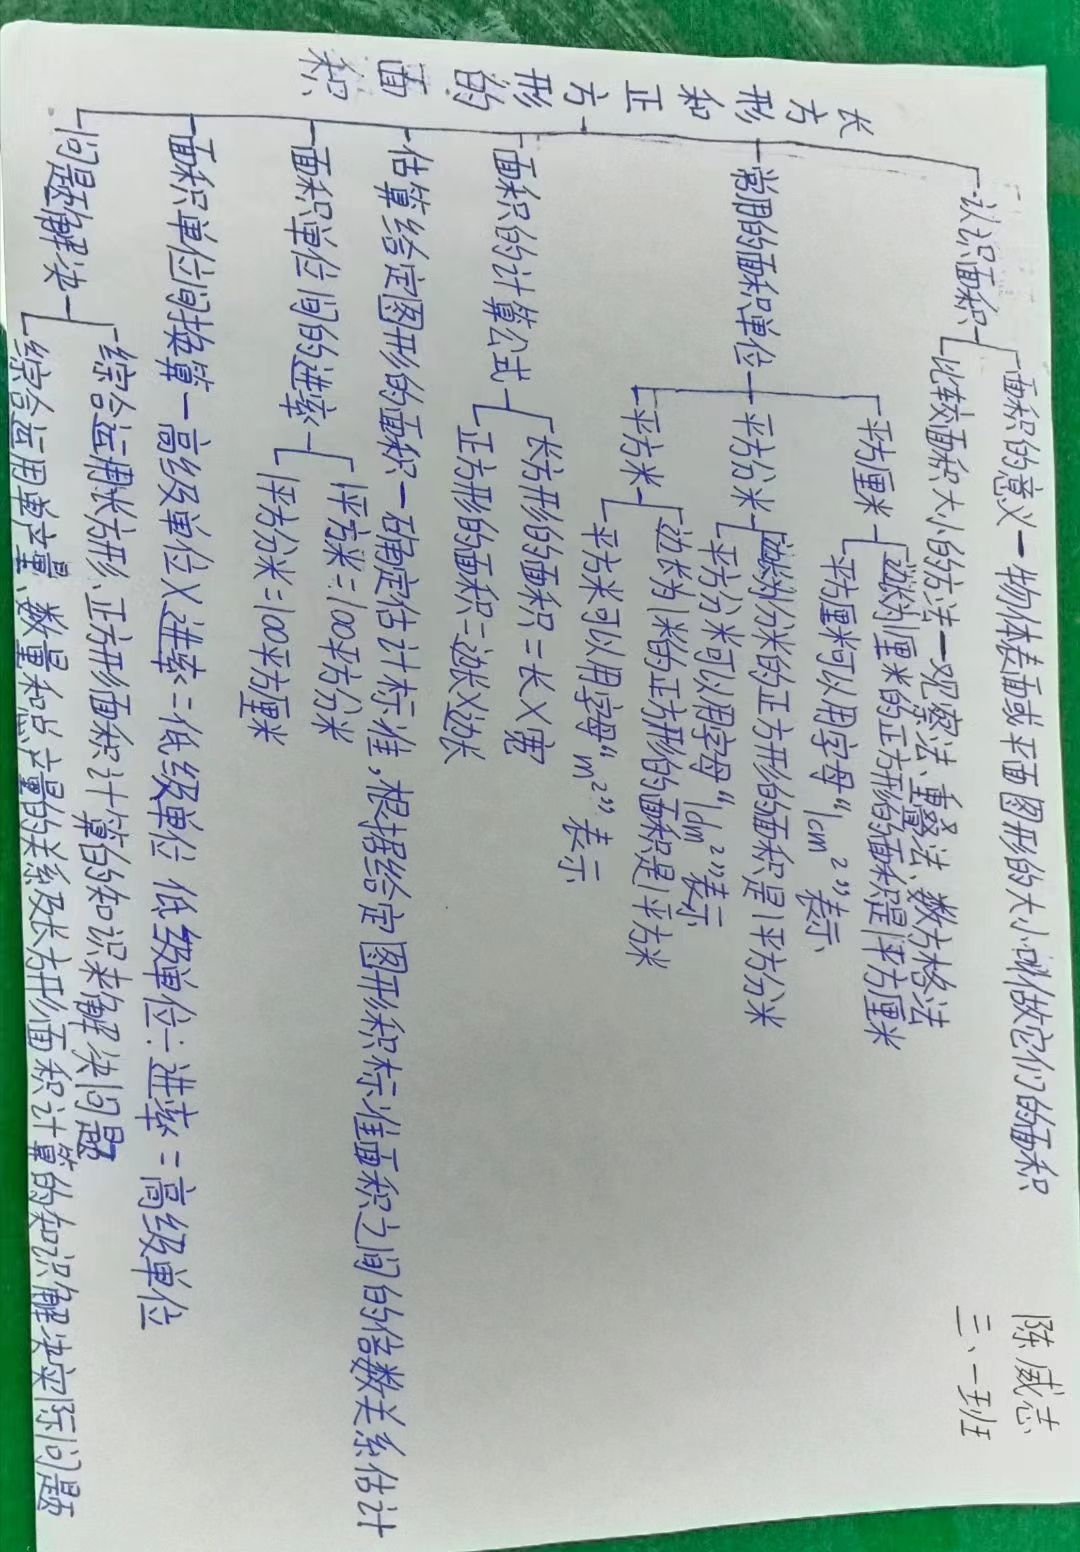 陈威志
三、一班
长方形和正方形的面积
认识面积
面积的意义—物体表面或平面图形的大小叫做它们的面积
比较面积大小的方法—观察法、重叠法、数方格法
常用的面积单位
平方厘米
边长为1厘米的正方形的面积是1平方厘米
平方厘米可以用字母“1cm²”表示
平方分米
边长为1分米的正方形的面积是1平方分米
平方分米可以用字母“1dm²”表示
平方米
边长为1米的正方形的面积是1平方米
平方米可以用字母“m²”表示
面积的计算公式
长方形的面积=长×宽
正方形的面积=边长×边长
估算给定图形的面积—确定估计标准,根据给定图形积标准面积之间的倍数关系估计
面积单位间的进率
1平方米=100平方分米
1平方分米=100平方厘米
面积单位间换算—高级单位×进率=低级单位 低级单位÷进率=高级单位
问题解决
综合运用长方形、正方形面积计算的知识来解决问题
综合运用单产量、数量和总产量的关系及长方形面积计算的知识解决实际问题